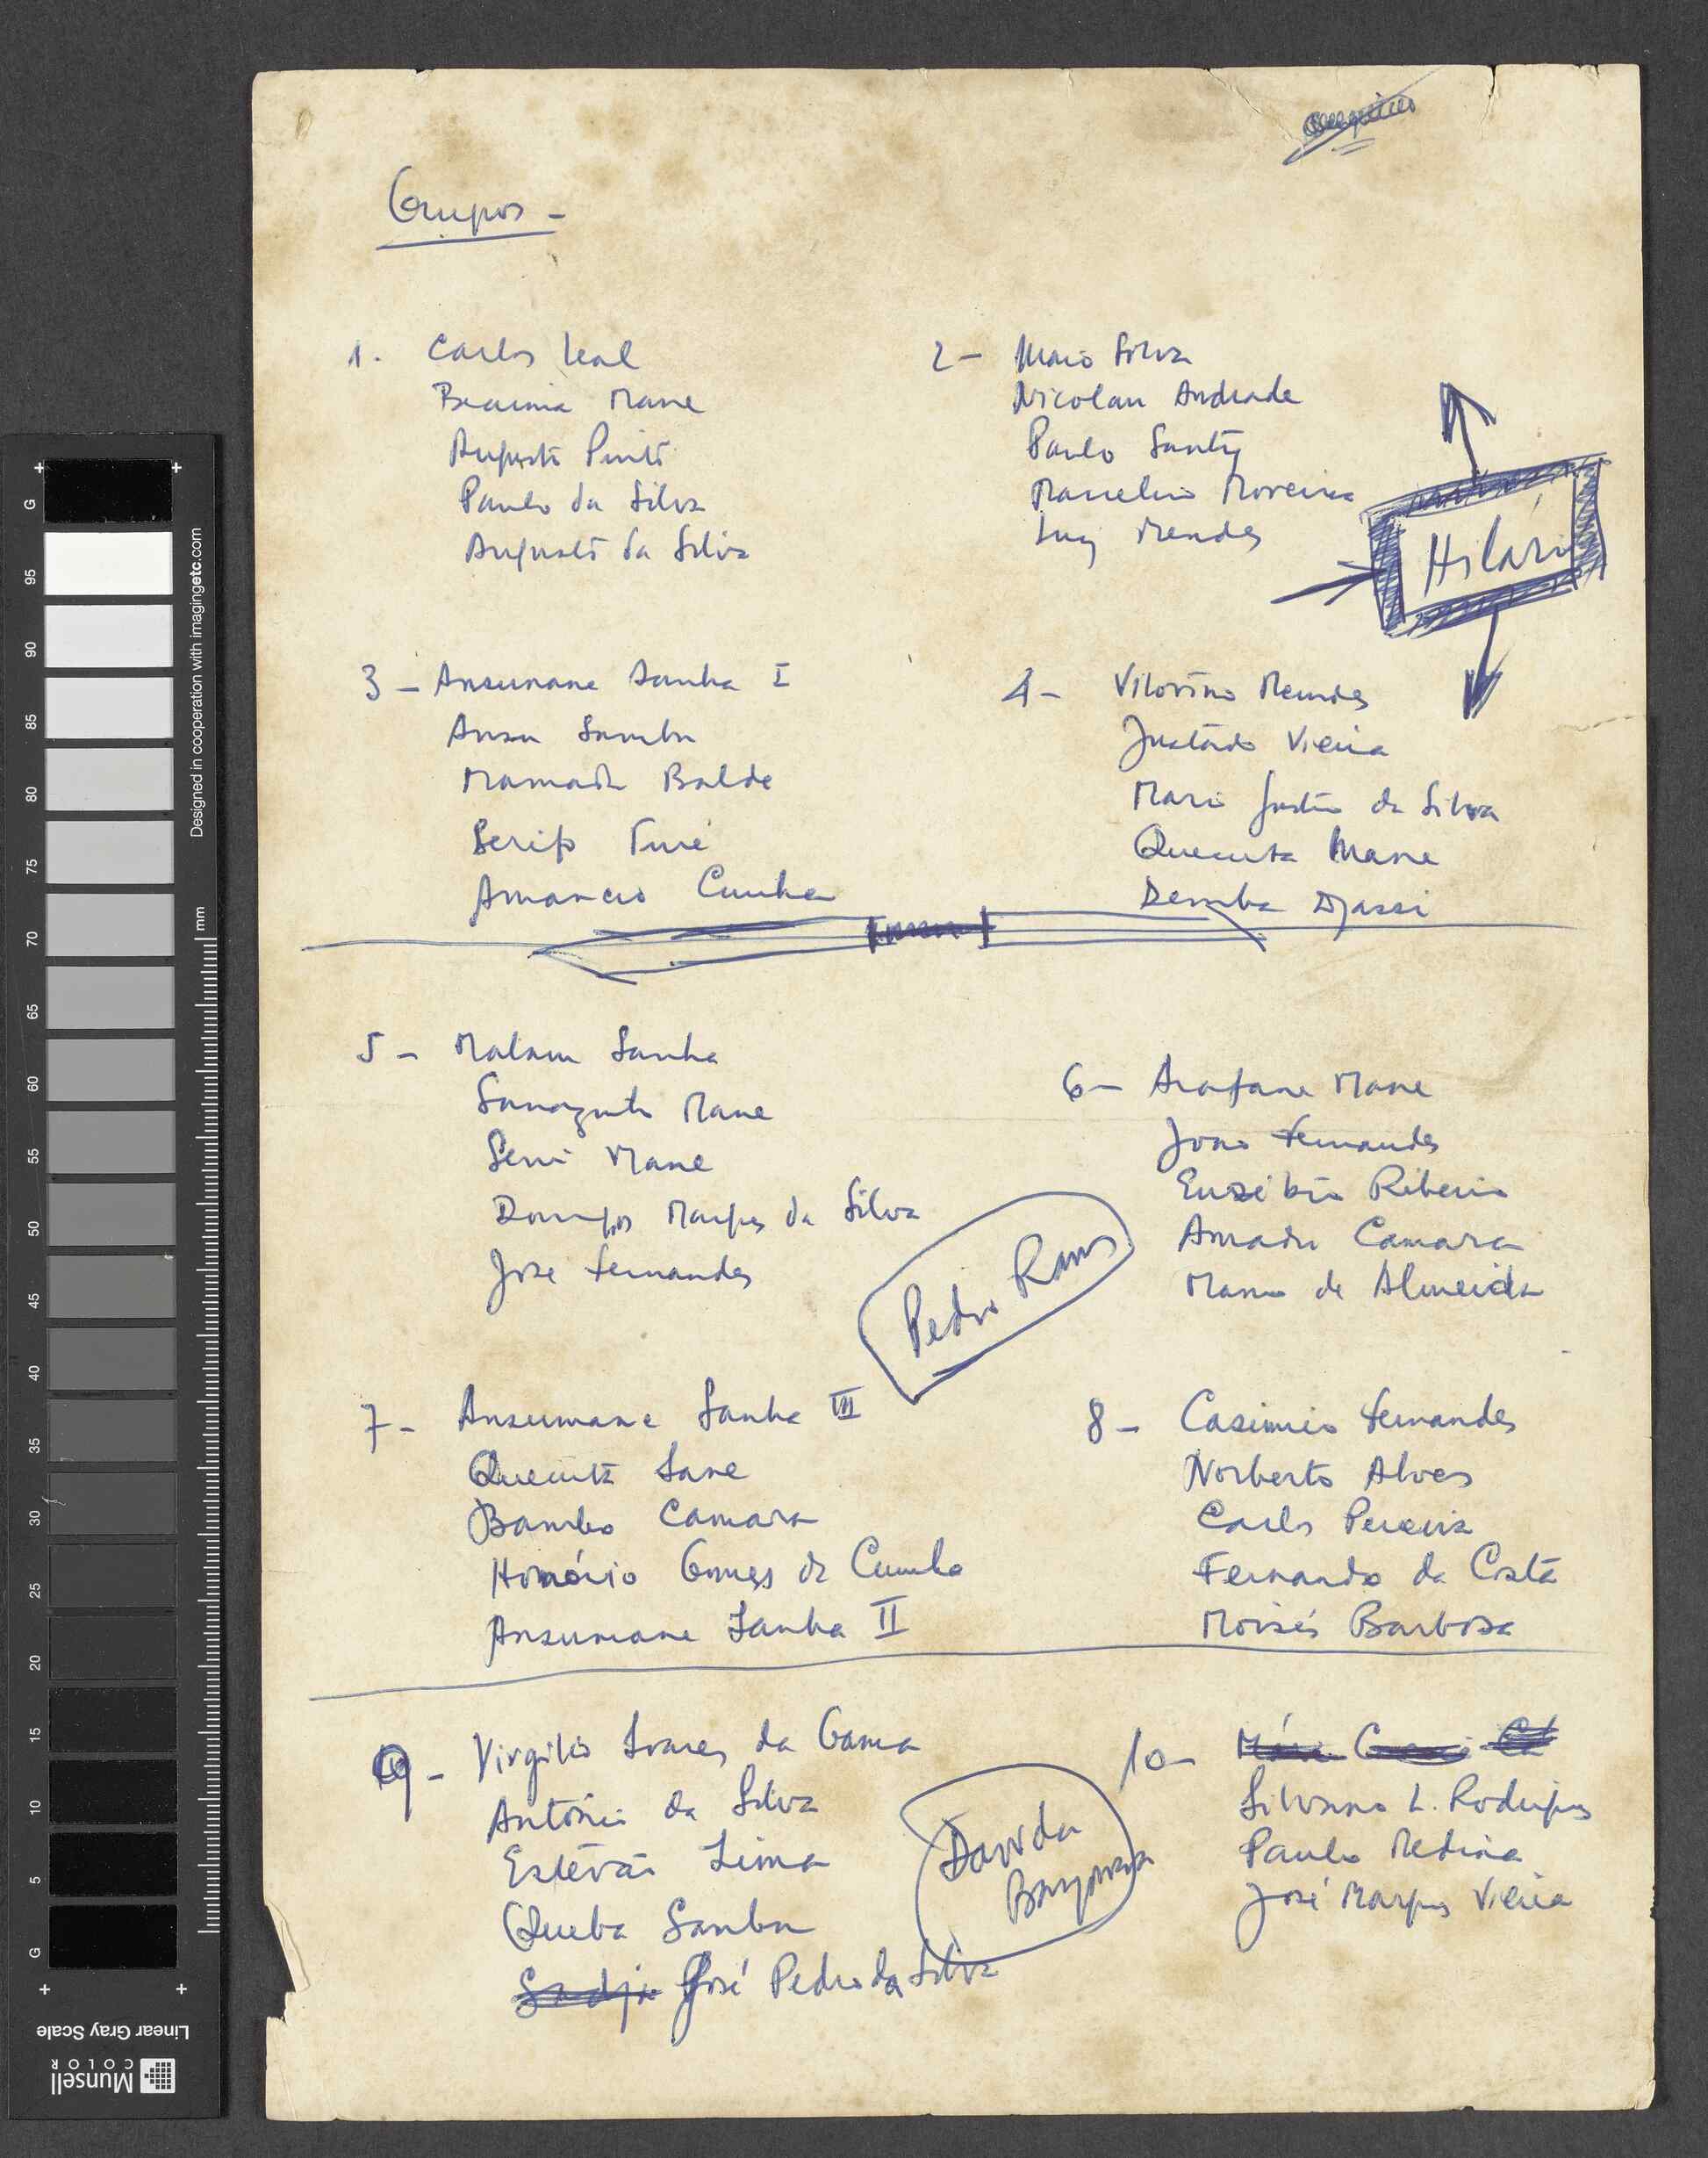 Grupos -
1. Carlos Leal
Braima Mane
Augusto Pinto
Paulo da Silva
Augusto da Silva
2 - Mario Silva
Nicolau Andrade
Paulo Santy
Marcelino Moreira
Luiz Mendes
Hilário
3 - Ansumane Sanha I
Ansu Sambu
Mamadu Balde
Serifo Turé
Amancio Cunha
4 - Vitorino Mendes
Justado Vieira
Mario Justino da Silva
Quecuta Mane
Demba Djassi
5 - Malam Sanha
Mane
Seni Mane
Domingos Marques da Silva
Jose Fernandes
Pedro Ramos
6 - Arafane Mane
João Fernandes
Euzébio Ribeiro
Amadu Camara
de Almeida
7 - Ansumane Sanha III
Quecuta Sane
Bambo Camara
Honório Gomes da Cunha
Ansumane Sanha II
8 - Casimiro Fernandes
Norberto Alves
Carlos Pereira
Fernando da Costa
Moisés Barbosa
9 - Virgilio Soares da Gama
António da Silva
Estêvão Lima
Queba Sambu
José Pedro da Silva
Dauda
Bangoura
10 -
Silvano L. Rodrigues
Paulo Medina
José Marques Vieira
Designed in cooperation with imagingetc.com
mm
G
95
90
85
80
75
70
65
60
55
50
45
40
35
30
25
20
15
10
5
G
Linear Gray Scale
Munsell
COLOR